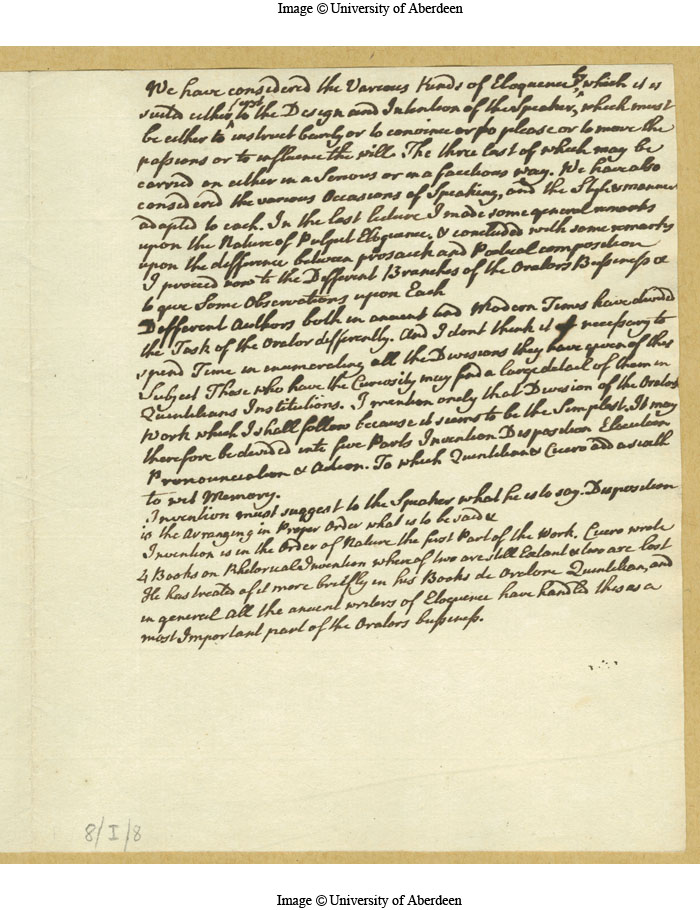 Image © University of Aberdeen
We have considered the Various Kinds of Eloquence by which it is
suited either 1st to the Design and Intention of the Speaker, which must
be either to instruct barely or to convince or to please or to move the
passions or to influence the will. The three last of which may be
carried on either in a Serious or in a facetious way. We have also
considered the various Occasions of Speaking, and the Style & manner
adapted to each. In the last lecture I made some general remarks
upon the Nature of Pulpit Eloquence. & concluded with some remarks
upon the difference between prosaick and Poetical composition
I proceed now to the Different Branches of the Orators Bussiness &
to give Some Observations upon Each
Different Authors both in ancient and Modern Times have divided
the Task of the Orator differently. And I dont think it necessary to
spend Time in enumerating all the Divisions they have given of this
Subject Those who have the Curiosity may find a large detail of them in
Quintilians Institutions. I mention only that Division of the Orators
Work which I shall follow because it seems to be the Simplest. It may
therefore be divided into five Parts Invention Disposition Elocution
Pronounciation & Action. To which Quintilian & Cicero add a sixth
to wit Memory.
Invention must suggest to the Speaker what he is to say. Disposition
is the Arranging in Proper Order what is to be said &
Invention is in the Order of Nature the first Part of the Work. Cicero wrote
4 Books on Rhetorical Invention whereof two are still Extant & two are lost
He has treated of it more briefly in his Books de Oratore Quintilian, and
in general all the ancient writers of Eloquence have handled this as a
most Important part of the Orators bussiness.
8/I/8
Image © University of Aberdeen